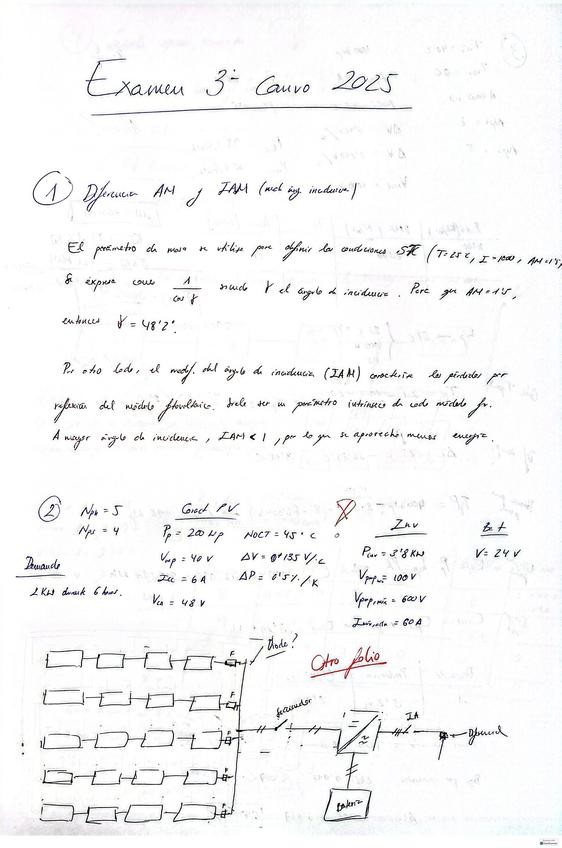 Examen 3º Cauro 2025
① Diferencia AM y IAM (mod. áng. incidencia)
El parámetro de masa se utiliza para definir las condiciones STC (T=25ºC, I=1000, AM=1'5)
Se expresa como 1/cos γ siendo γ el ángulo de incidencia. Para que AM=1'5,
entonces γ = 48'2º.
Por otro lado, el modf. del ángulo de incidencia (IAM) caracteriza las pérdidas por
reflexión del módulo fotovoltaico. Suele ser un parámetro intrínseco de cada módulo fv.
A mayor ángulo de incidencia, IAM < 1, por lo que se aprovecha menos energía.
② Npb = 5
Nps = 4
Caract PV
Pp = 200 Wp NOCT = 45º C
Vmp = 40 V ΔV = 0'135 V/ºC
Icc = 6 A ΔP = 0'5%/K
Vca = 48 V
Inv
Pinv = 3'8 KW
Vpmp min = 100 V
Vpmp máx = 600 V
= 60 A
Bat
V = 24 V
Demanda
2 KW durante 6 horas.
Diodo?
Otro folio
F
F
F
F
F
IA
Diferencial
Batería